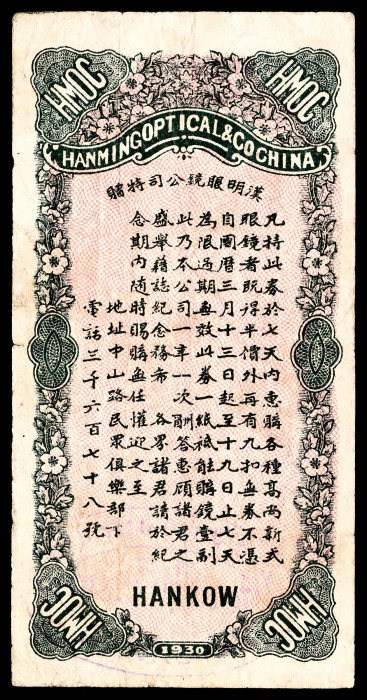 HMOC
HMOC
HANMING OPTICAL & CO CHINA
漢明眼鏡公司特購
凡持此券於七天內惠購各種高尚新式
眼鏡者既得半價外再有九扣無券不憑
自國曆三月十三日起至十九日止七天
為限過期無效此券一紙祗能購鏡壹副
此乃本公司一年一次酬答惠顧諸君之
盛舉藉誌紀念務希 各界諸君請於紀
念期內隨時賜購無任懽迎之至
地址中山路民眾俱樂部下
電話三千六百七十八號
HANKOW
HMOC
HMOC
1930